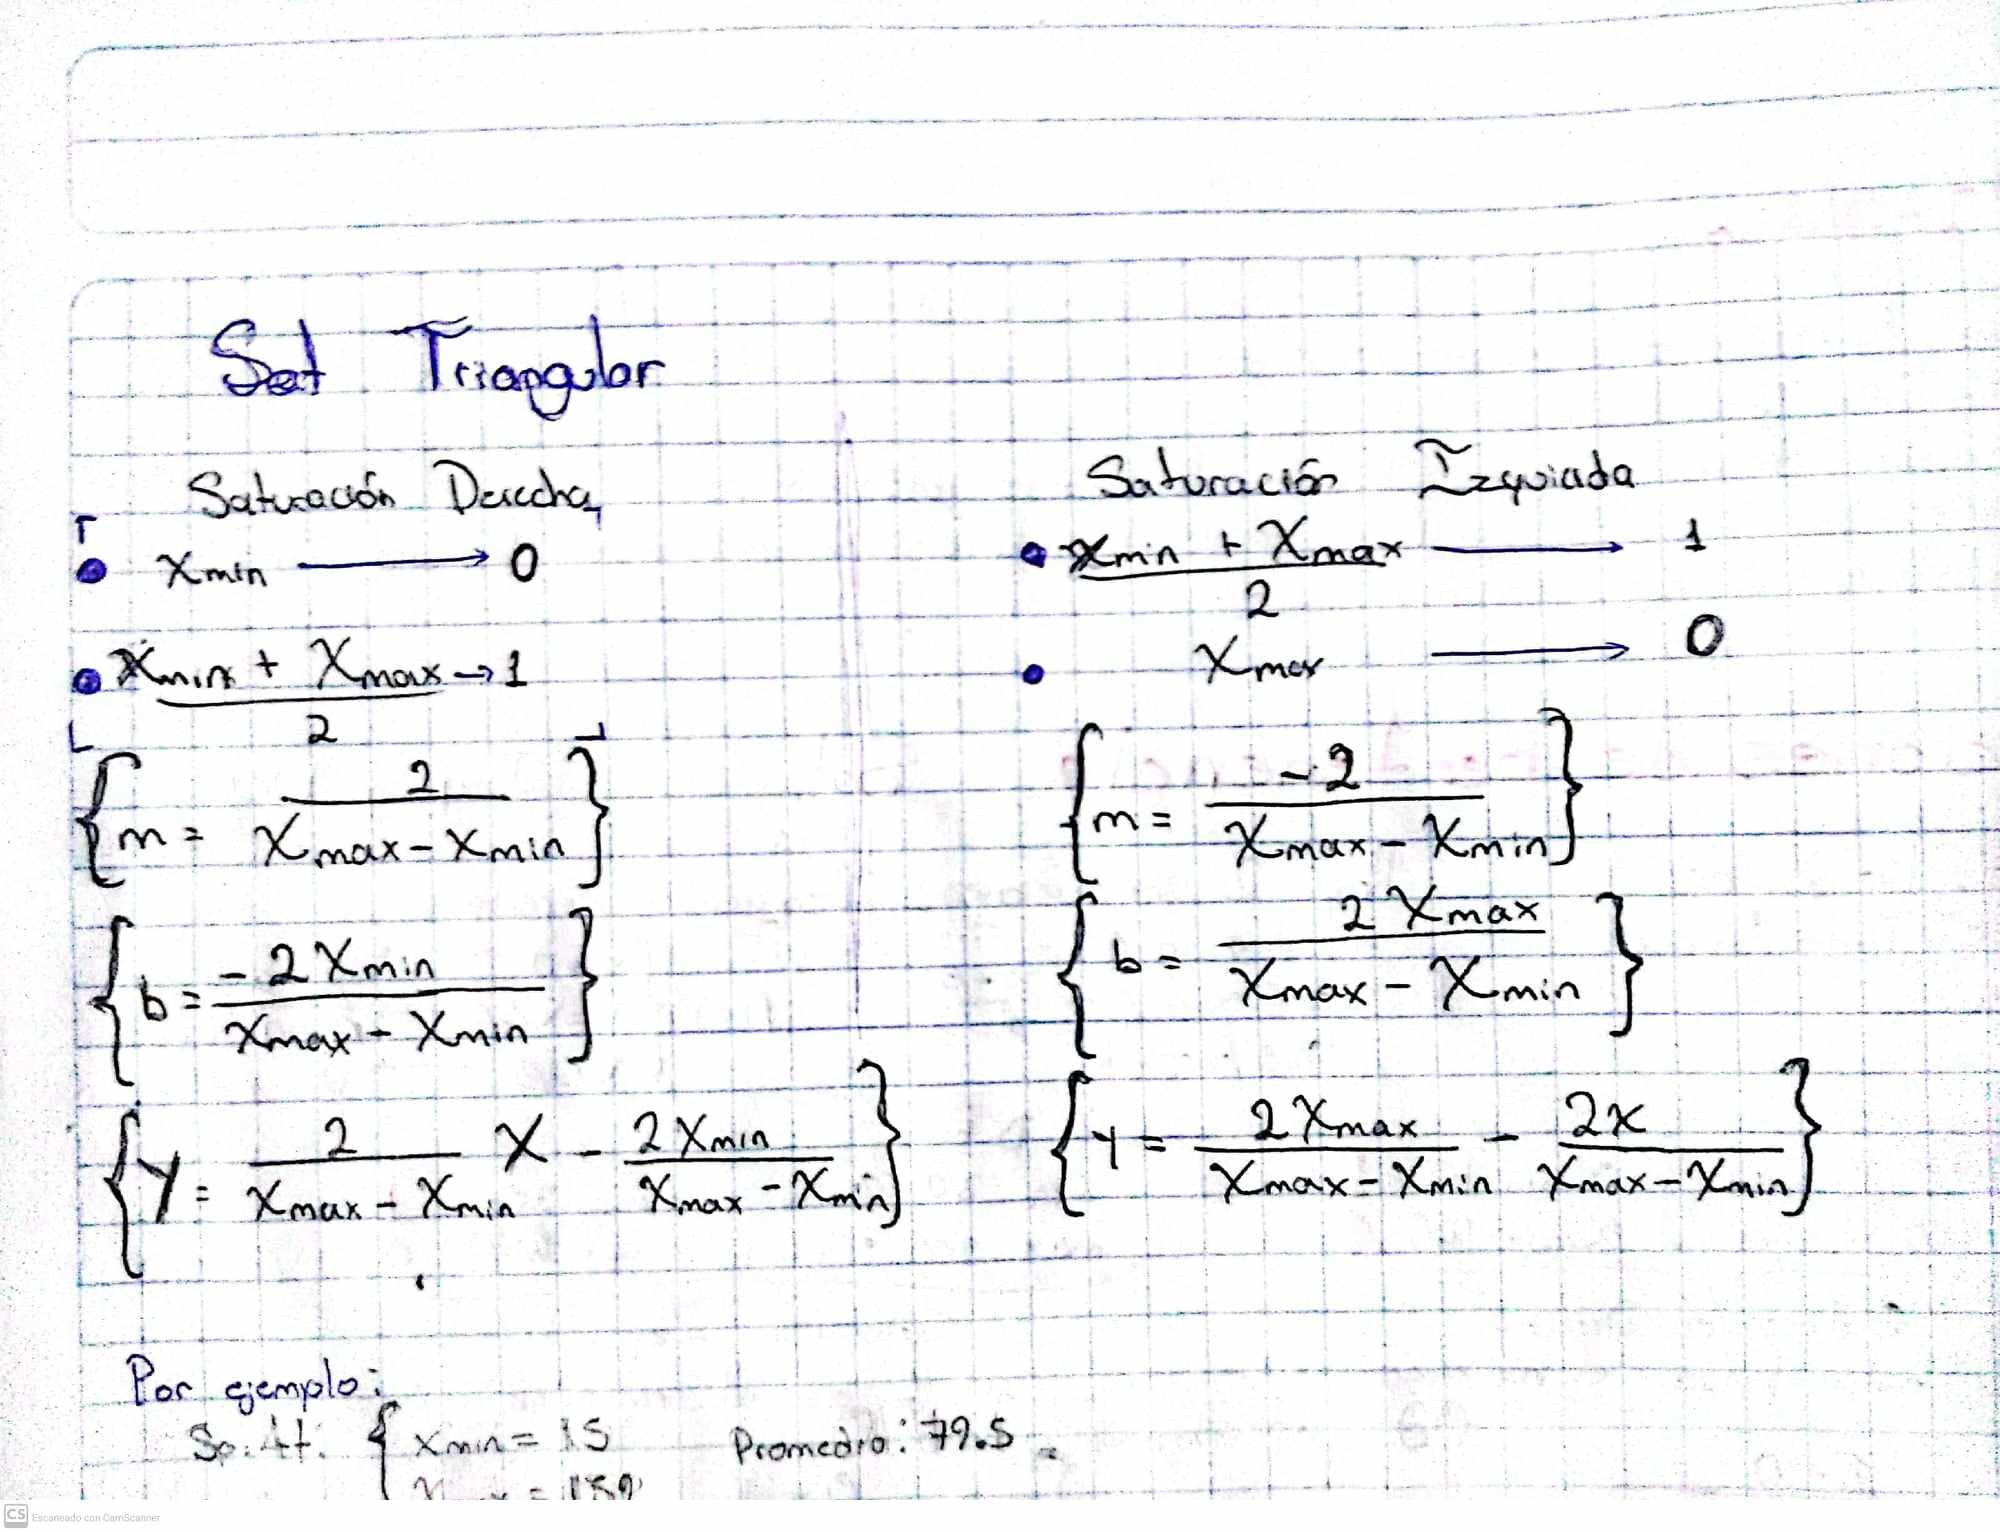 Set Triangular
Saturación Derecha
Xmin → 0
Xmin + Xmax → 1
2
{ m = 2 / (Xmax - Xmin) }
{ b = -2 Xmin / (Xmax - Xmin) }
{ Y = 2 / (Xmax - Xmin) X - 2 Xmin / (Xmax - Xmin) }
Saturación Izquieda
Xmin + Xmax → 1
2
Xmax → 0
{ m = -2 / (Xmax - Xmin) }
{ b = 2 Xmax / (Xmax - Xmin) }
{ Y = 2 Xmax / (Xmax - Xmin) - 2x / (Xmax - Xmin) }
Por ejemplo:
{ Xmin = 15 Promedio: 79.5
CS Escaneado con CamScanner